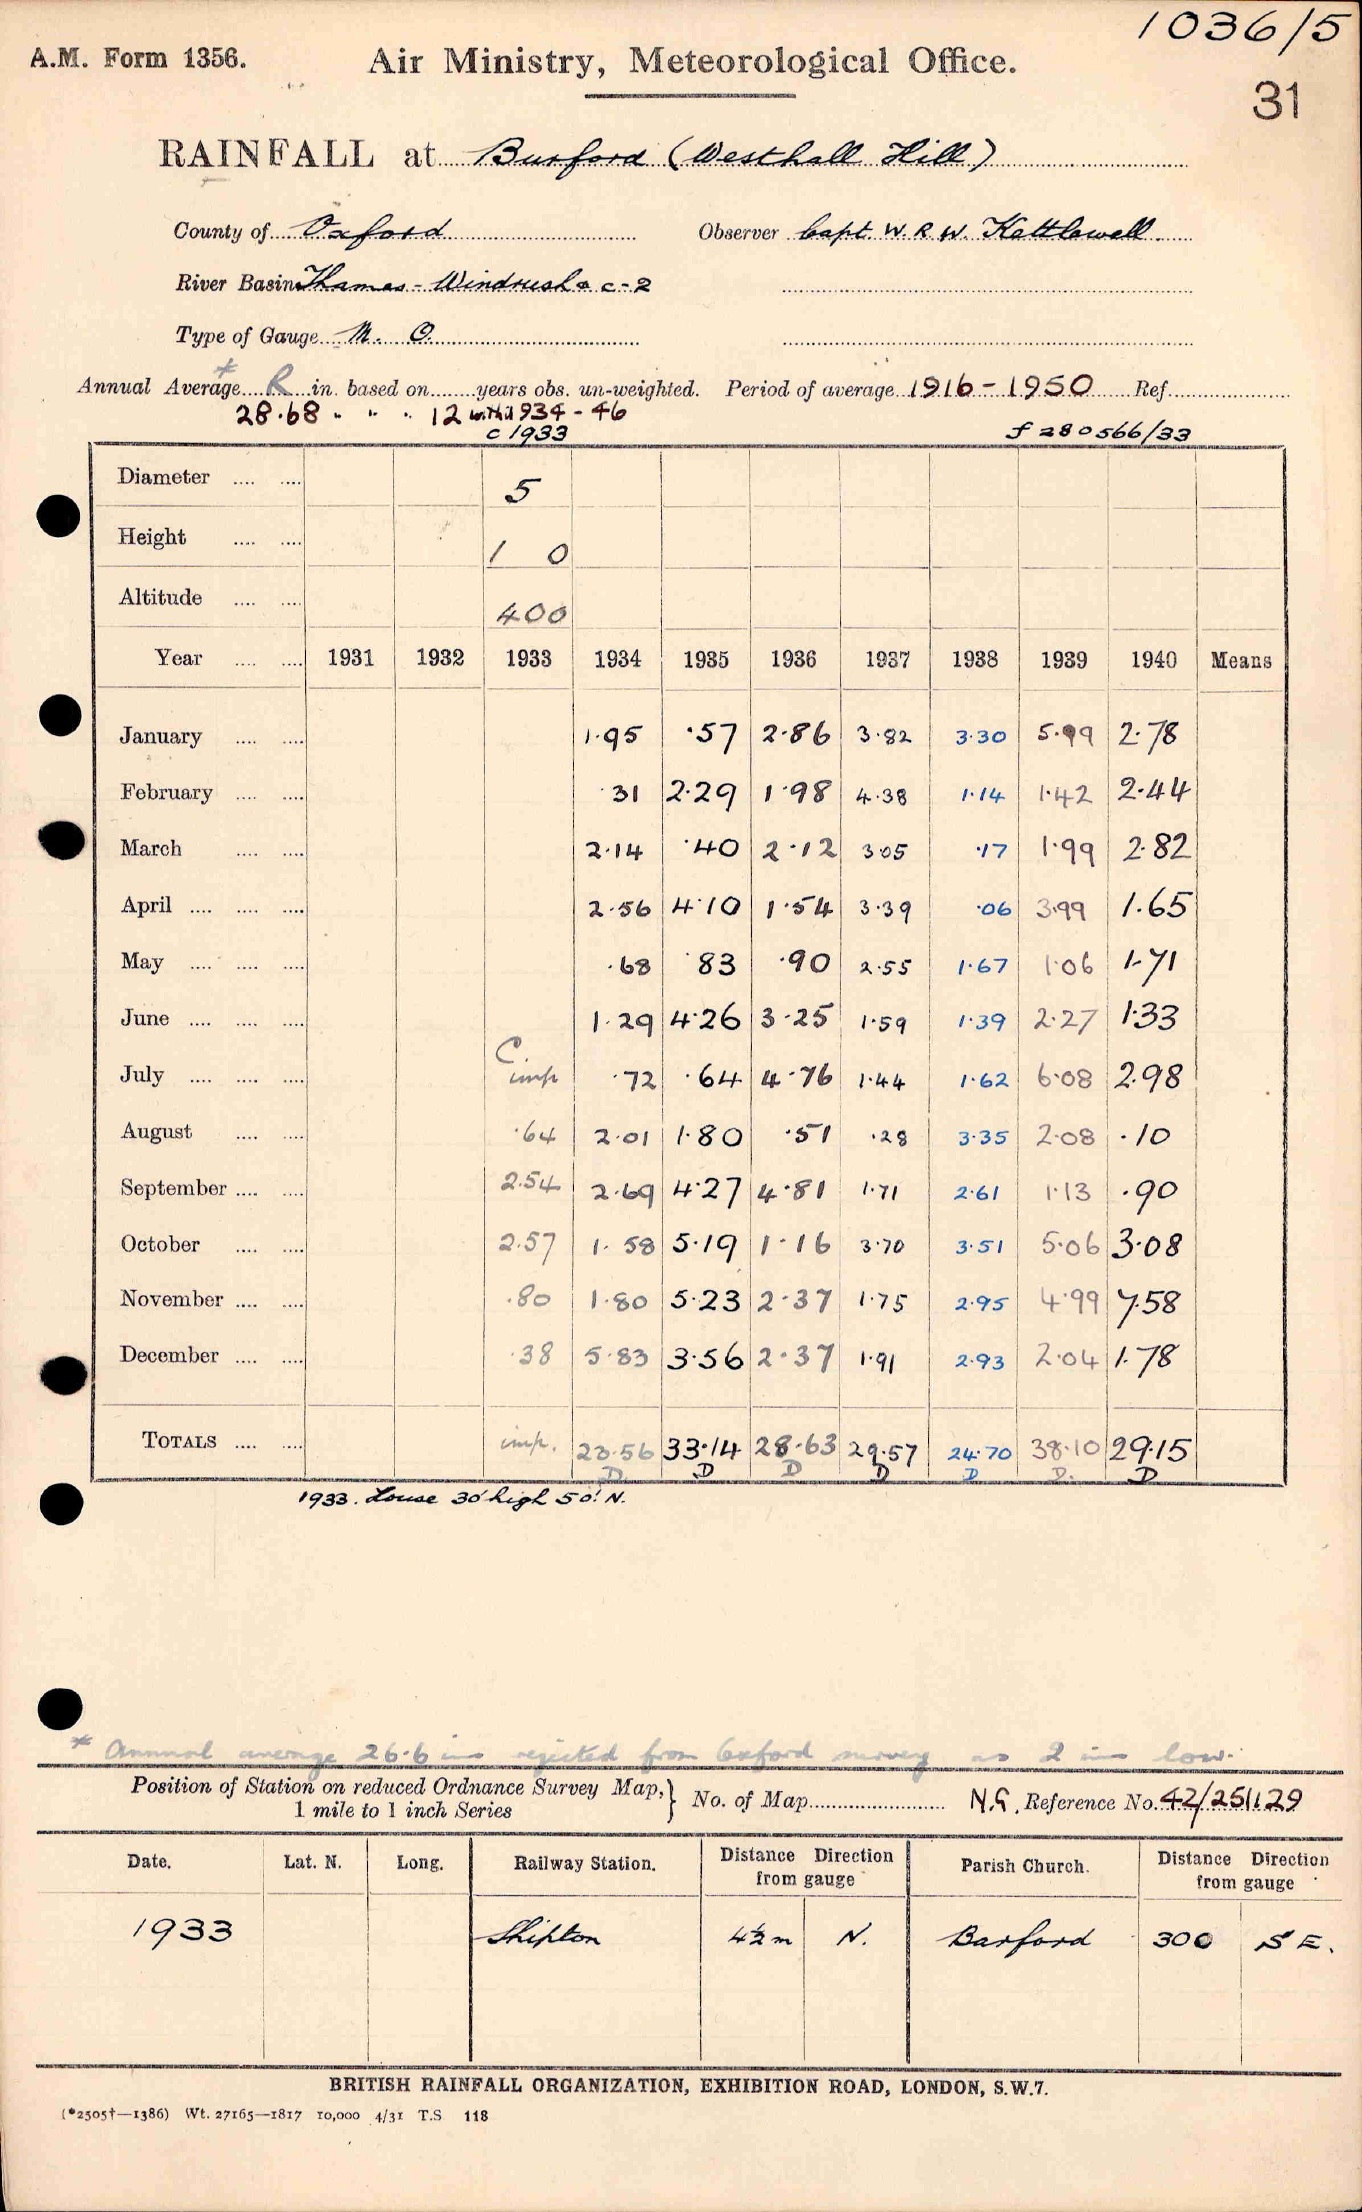 1036/5
A.M. Form 1356. Air Ministry, Meteorological Office.
31
RAINFALL at Burford (Westhall Hill)
County of Oxford Observer Capt. W. R. W. Kettlewell
River Basin Thames - Windrush c-2
Type of Gauge M. O.
Annual Average * R in. based on ...... years obs. un-weighted. Period of average 1916-1950 Ref.
28.68 " " " 12 1934-46
c 1933 f 280566/33
Diameter .... .... 5
Height .... .... 1 0
Altitude .... .... 400
Year .... .... 1931 1932 1933 1934 1935 1936 1937 1938 1939 1940 Means
January .... .... 1.95 .57 2.86 3.82 3.30 5.99 2.78
February .... .... .31 2.29 1.98 4.38 1.14 1.42 2.44
March .... .... 2.14 .40 2.12 3.05 .17 1.99 2.82
April .... .... .... 2.56 4.10 1.54 3.39 .06 3.99 1.65
May .... .... .... .68 .83 .90 2.55 1.67 1.06 1.71
June .... .... .... 1.29 4.26 3.25 1.59 1.39 2.27 1.33
C.
July .... .... .... imp .72 .64 4.76 1.44 1.62 6.08 2.98
August .... .... .64 2.01 1.80 .51 .28 3.35 2.08 .10
September .... .... 2.54 2.69 4.27 4.81 1.71 2.61 1.13 .90
October .... .... 2.57 1.58 5.19 1.16 3.70 3.51 5.06 3.08
November .... .... .80 1.80 5.23 2.37 1.75 2.95 4.99 7.58
December .... .... .38 5.83 3.56 2.37 1.91 2.93 2.04 1.78
TOTALS .... .... imp. 23.56 33.14 28.63 29.57 24.70 38.10 29.15
D D D D D D. D
1933. House 30' high 50' N.
* Annual average 26.6 ins rejected from Oxford survey as 2 ins low.
Position of Station on reduced Ordnance Survey Map, } No. of Map N.G. Reference No. 42/251129
1 mile to 1 inch Series
Date. Lat. N. Long. Railway Station. Distance Direction from gauge Parish Church. Distance Direction from gauge
1933 Shipton 4½m N. Burford 300 S E.
BRITISH RAINFALL ORGANIZATION, EXHIBITION ROAD, LONDON, S.W.7.
(*2505†—1386) Wt. 27165—1817 10,000 4/31 T.S 118